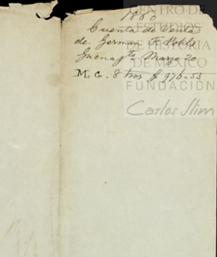 1880
Cuenta de Venta
de German F. Noble
Marzo 20
M. C. 8 tros $ 976.55
CENTRO DE
ESTUDIOS
DE HISTORIA
DE MÉXICO
FUNDACIÓN
Carlos Slim